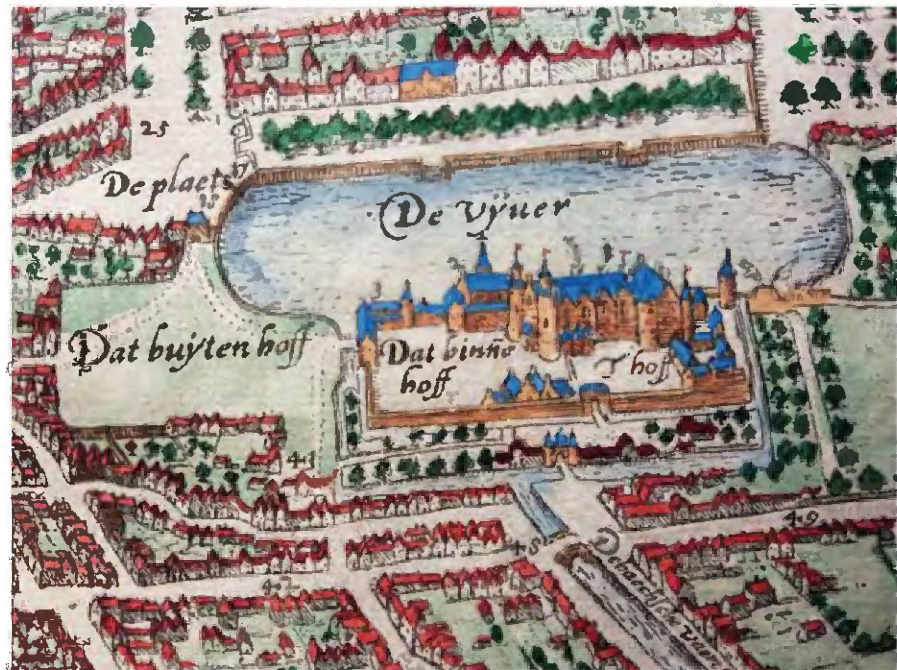 25
De plaets
De Vijuer
Dat buijten hoff
Dat binne
hoff
T hoff
41
49
48
42
De haechsche Vaert